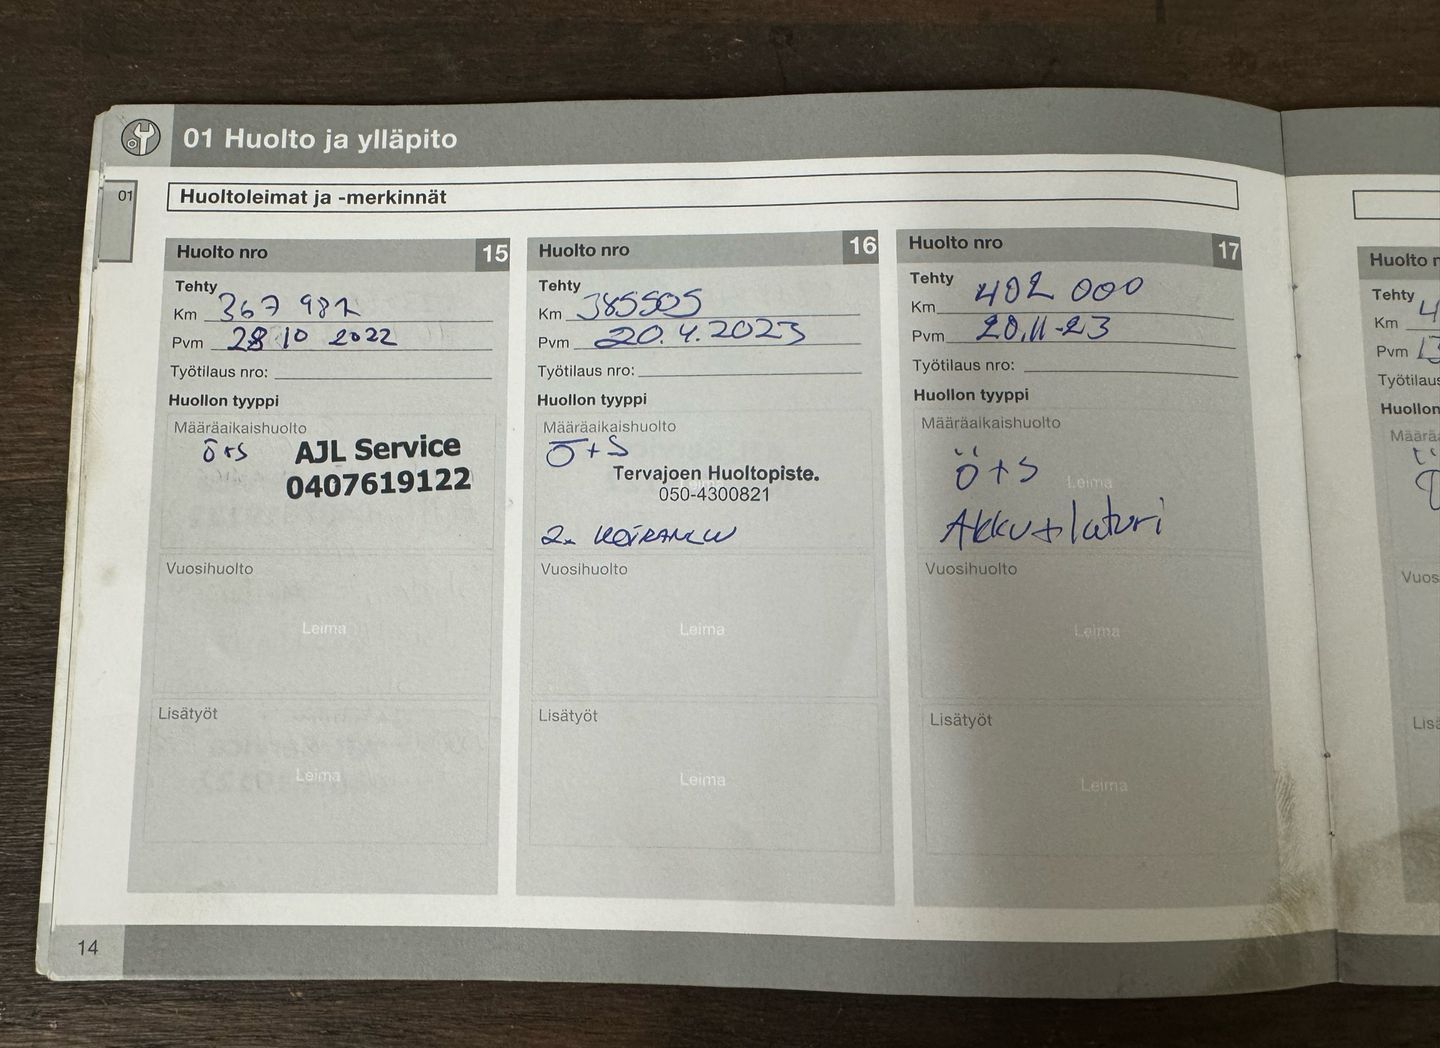 01 Huolto ja ylläpito
01
Huoltoleimat ja -merkinnät
Huolto nro 15
Tehty
Km 367 982
Pvm 28 10 2022
Työtilaus nro:
Huollon tyyppi
Määräaikaishuolto
ö+s
AJL Service
0407619122
Vuosihuolto
Leima
Lisätyöt
Leima
Huolto nro 16
Tehty
Km 385505
Pvm 20.4.2023
Työtilaus nro:
Huollon tyyppi
Määräaikaishuolto
Ö+S
Tervajoen Huoltopiste.
050-4300821
2x
Vuosihuolto
Leima
Lisätyöt
Leima
Huolto nro 17
Tehty
Km 402 000
Pvm 20.11-23
Työtilaus nro:
Huollon tyyppi
Määräaikaishuolto
ö+s
Leima
Akku+laturi
Vuosihuolto
Leima
Lisätyöt
Leima
14
Huolto
Tehty
Km 4
Pvm 13
Työtilaus
Huollon